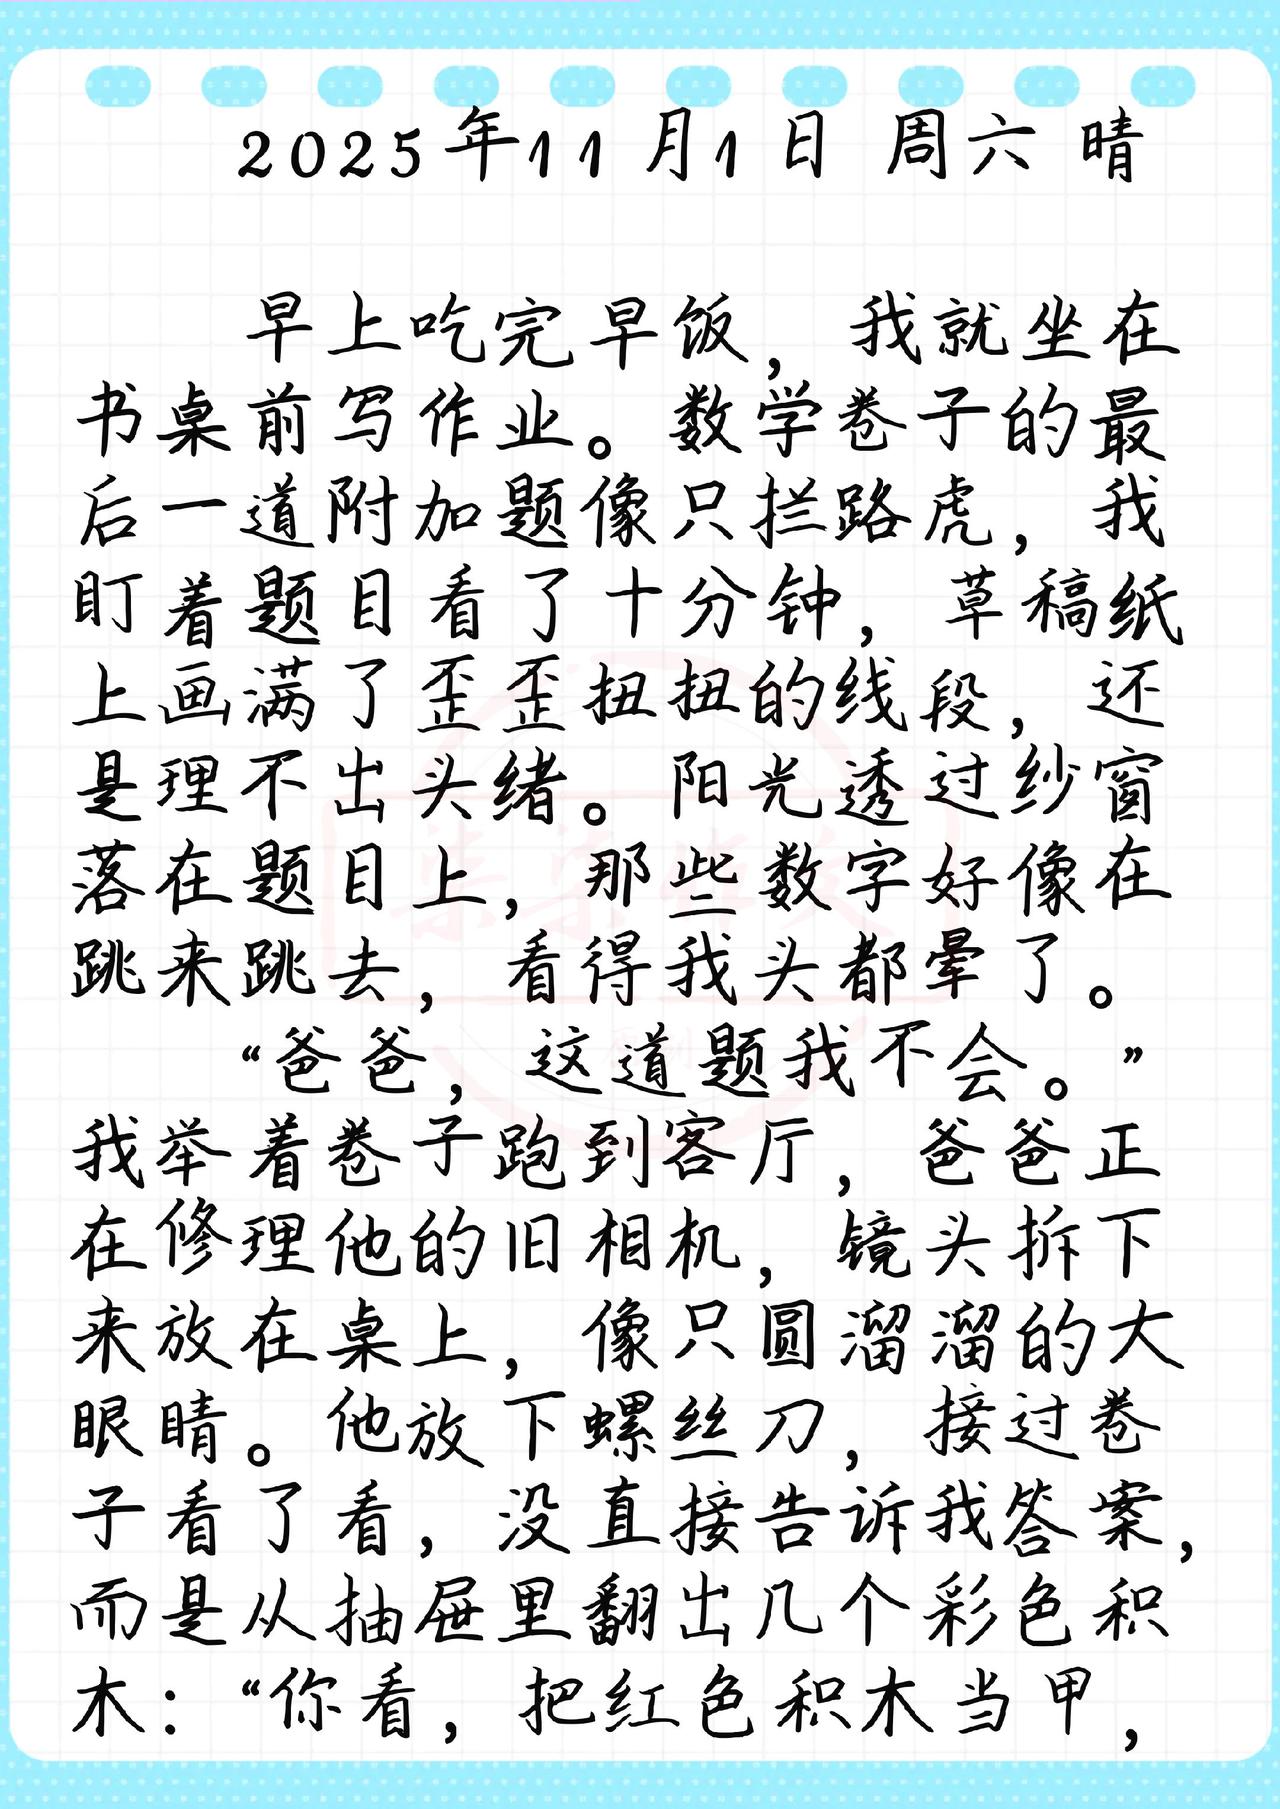 2025年11月1日 周六 晴
早上吃完早饭，我就坐在
书桌前写作业。数学卷子的最
后一道附加题像只拦路虎，我
盯着题目看了十分钟，草稿纸
上画满了歪歪扭扭的线段，还
是理不出头绪。阳光透过纱窗
落在题目上，那些数字好像在
跳来跳去，看得我头都晕了。
“爸爸，这道题我不会。”
我举着卷子跑到客厅，爸爸正
在修理他的旧相机，镜头拆下
来放在桌上，像只圆溜溜的大
眼睛。他放下螺丝刀，接过卷
子看了看，没直接告诉我答案，
而是从抽屉里翻出几个彩色积
木：“你看，把红色积木当甲，